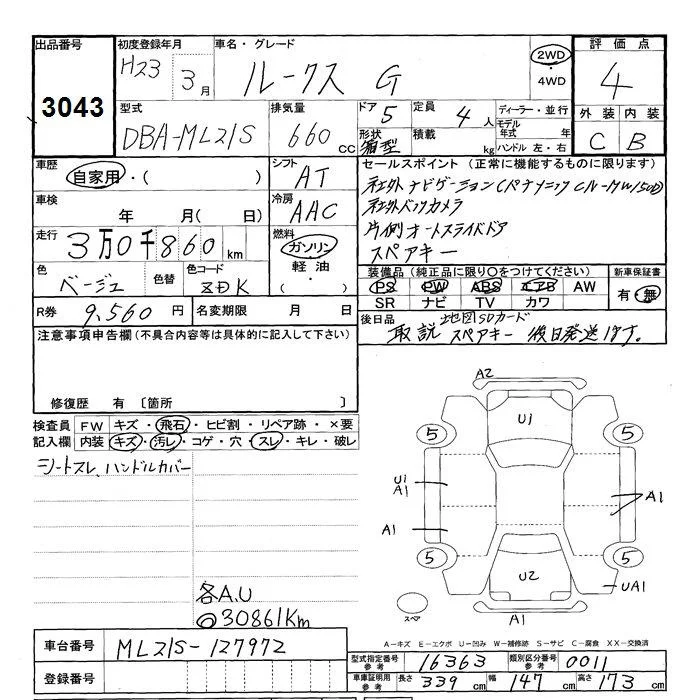 出品番号 初度登録年月 車名・グレード 評価点
3043 H23 3月 ルークス G 2WD 4
・4WD
型式 排気量 ドア 5 定員 4人 ディーラー・並行 外装 内装
DBA-ML21S 660cc 形状 箱型 積載 kg モデル年式 年 ハンドル 左・右 C B
車歴 自家用・( ) シフト AT セールスポイント (正常に機能するものに限ります)
車検 年 月( 日) 冷房 AAC 社外ナビゲーション(パナソニック CN-MW150D)
社外バックカメラ
走行 3万0千860km 燃料 ガソリン 片側オートスライドドア
軽油 スペアキー
・( )
色 ベージュ 色替 色コード 装備品 (純正品に限り○をつけてください) 新車保証書
PS PW ABS エアB AW 有・無
SR ナビ TV カワ
R券 9,560円 名変期限 月 日 後日品 取説 地図SDカード スペアキー 後日発送します。
注意事項申告欄 (不具合内容等は具体的に記入して下さい)
修復歴 有 〔箇所 〕
検査員記入欄 FW キズ・飛石・ヒビ割・リペア跡・×要
内装 キズ・汚レ・コゲ・穴・スレ・キレ・破レ
シートスレ、ハンドルカバー
各A.U
30861Km
A2
U1
5 5
U1
A1
A1
A1
5 5
U2
UA1
スペア
A1
A-キズ E-エクボ U-凹み W-補修跡 S-サビ C-腐食 XX-交換済
車台番号 ML21S-127972
型式指定番号 参考 16363 類別区分番号 参考 0011
登録番号 車庫証明用 参考 長さ 339cm 幅 147cm 高さ 173cm